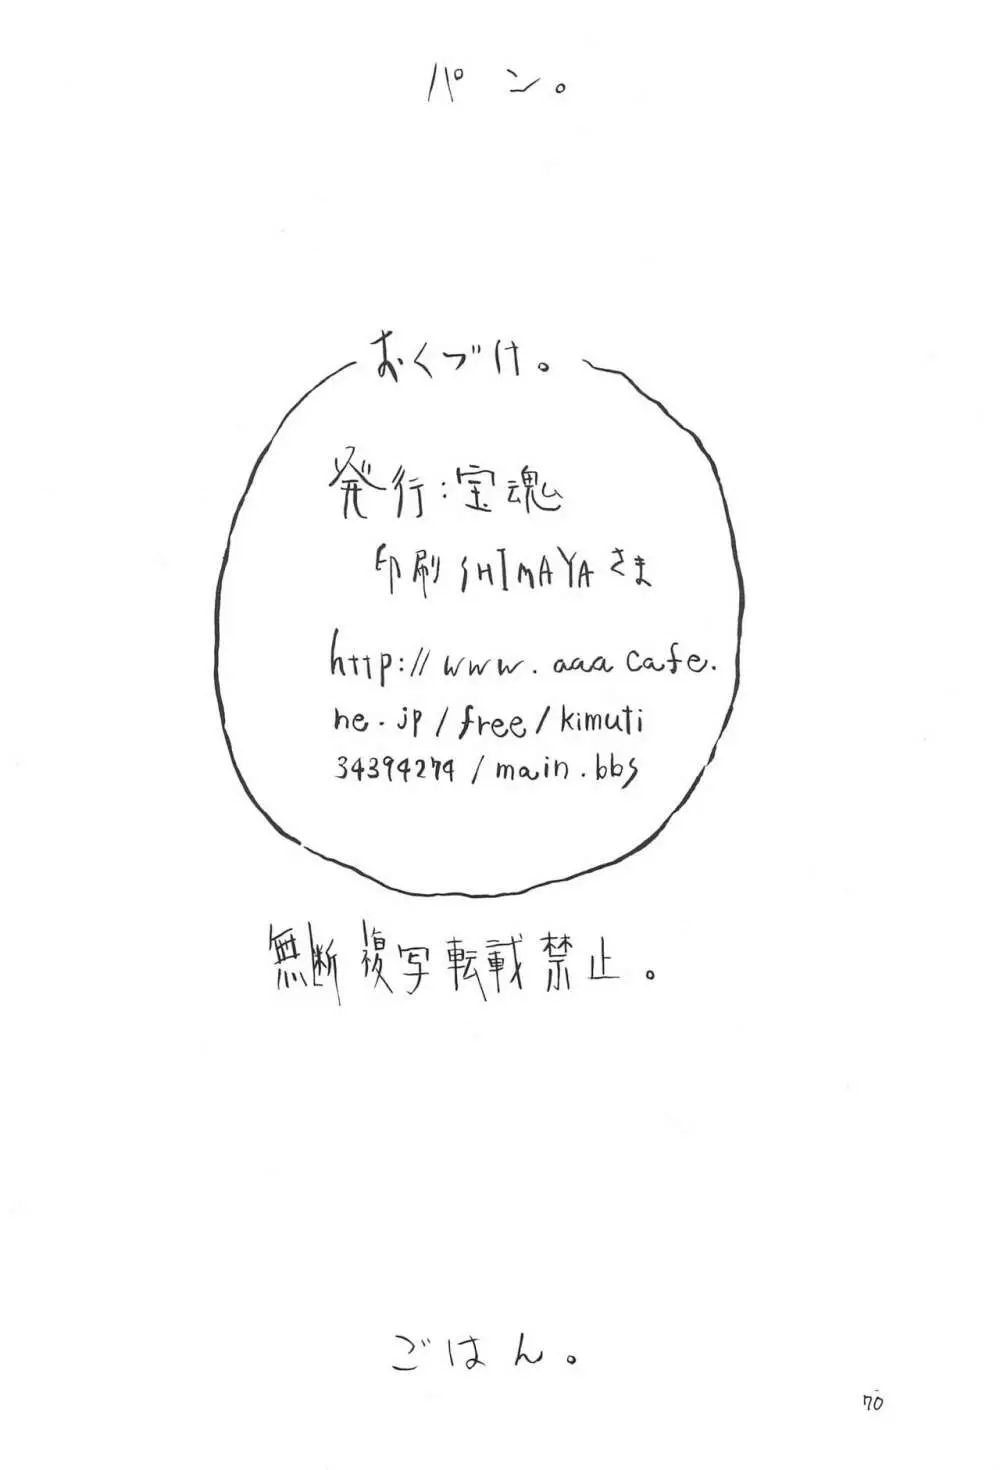 パン。
おくづけ。
発行:宝魂
印刷 SHIMAYAさま
http://www.aaacafe.
ne.jp/free/kimuti
34394274/main.bbs
無断複写転載禁止。
ごはん。
70